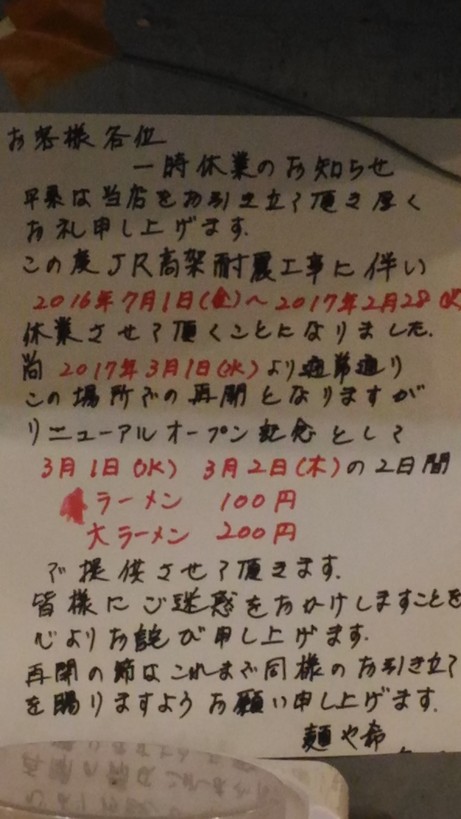 お客様各位
一時休業のお知らせ
平素は当店をお引き立て頂き厚く
お礼申し上げます.
この度JR高架耐震工事に伴い
2016年7月1日(金)〜2017年2月28
休業させて頂くことになりました.
尚 2017年3月1日(水)より通常通り
この場所での再開となりますが
リニューアルオープン記念として
3月1日(水) 3月2日(木)の2日間
ラーメン 100円
大ラーメン 200円
で提供させて頂きます.
皆様にご迷惑をおかけしますことを
心よりお詫び申し上げます.
再開の節はこれまで同様のお引き立て
を賜りますようお願い申し上げます.
麺や希